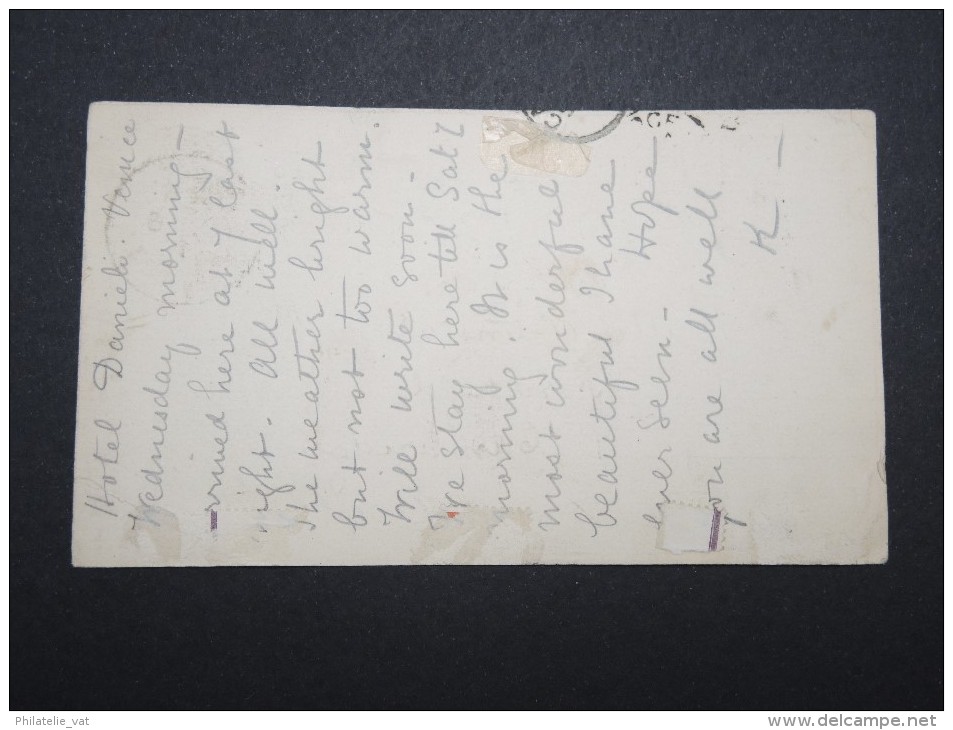 Hotel Danieli. Venice
Wednesday morning -
rrived here at 7 last
night. All well.
The weather bright
but not too warm.
Will write soon -
We stay here till Sat
morning. It is the
most wonderful
beautiful I have
ever seen - Hope
you are all well
K -
Philatelie_vat
www.delcampe.net